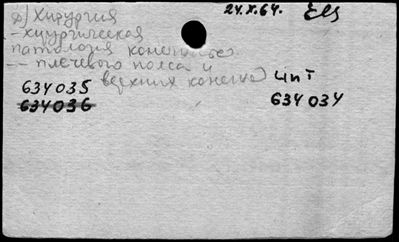 24.X.64.
д) Хирургия
- хирургическая
патология конечностей
-- плечевого пояса и
верхних конечн.
634035
634036
634034